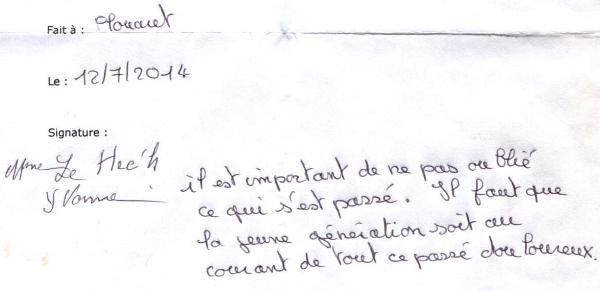 Fait à : Plouaret
Le : 12/7/2014
Signature :
Mme Le Hec'h
Yvonne
il est important de ne pas oublié
ce qui s'est passé. Il faut que
la jeune génération soit au
courant de tout ce passé douloureux.